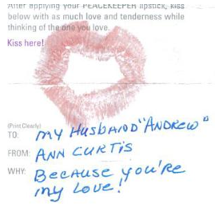 After applying your PEACEKEEPER lipstick, kiss
below with as much love and tenderness while
thinking of the one you love.
Kiss here!
(Print Clearly)
TO: my Husband "Andrew"
FROM: Ann Curtis
WHY: Because you're
my love!